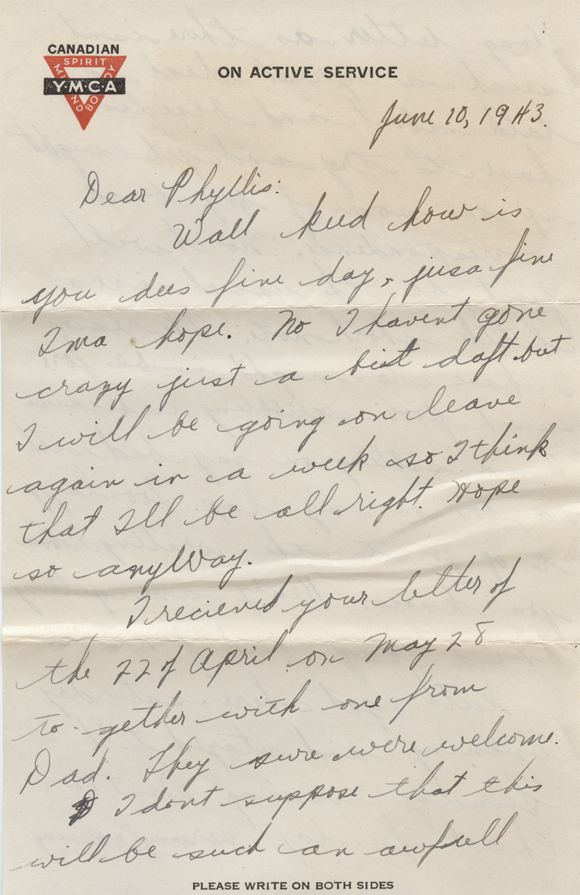 CANADIAN
SPIRIT
Y·M·C·A
MIND BODY
ON ACTIVE SERVICE
June 10, 1943.
Dear Phyllis:
Wall keed how is
you dees fine day, jusa fine
Ima hope. No I havent gone
crazy just a bit daft but
I will be going on leave
again in a week so I think
that I'll be all right. Hope
so anyWay.
I recieved your letter of
the 22 of April on May 28
to-gether with one from
Dad. They sure were welcome.
I dont suppose that this
will be such an awfull
PLEASE WRITE ON BOTH SIDES